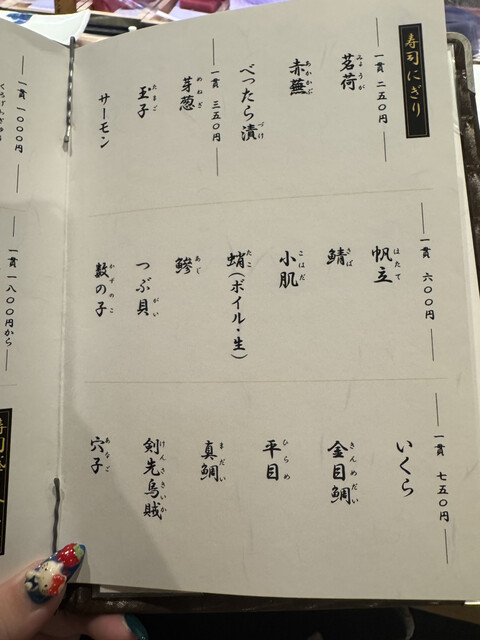 寿司にぎり
一貫 二五〇円
茗荷
みょうが
赤蕪
あかかぶ
べったら漬
づけ
一貫 三五〇円
芽葱
めねぎ
玉子
たまご
サーモン
一貫 六〇〇円
帆立
ほたて
鯖
さば
小肌
こはだ
蛸(ボイル・生)
たこ
鰺
あじ
つぶ貝
がい
数の子
かずのこ
一貫 七五〇円
いくら
金目鯛
きんめだい
平目
ひらめ
真鯛
まだい
剣先烏賊
けんさきいか
穴子
あなご
一貫 一〇〇〇円
一貫 一八〇〇円から
寿司